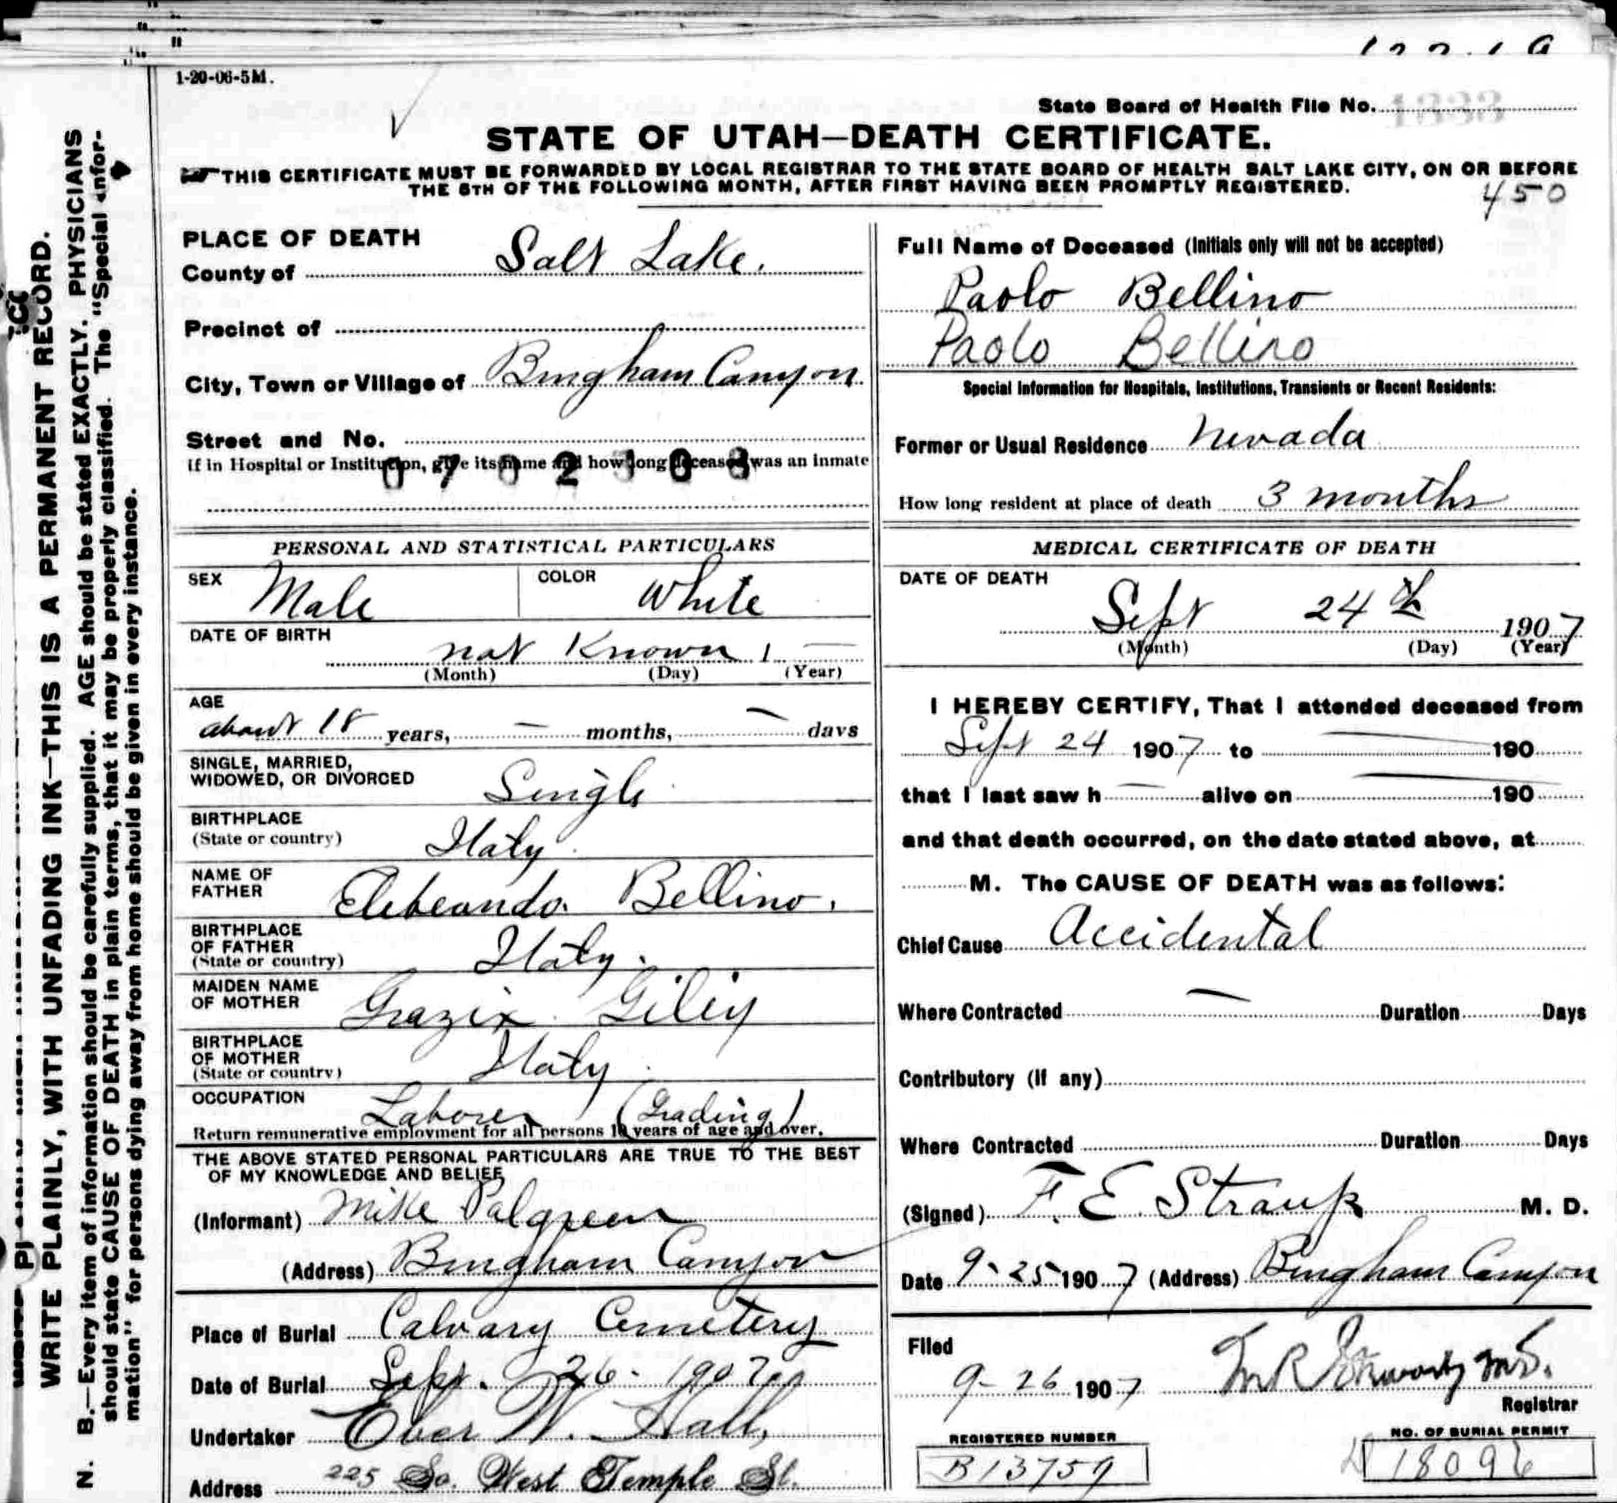 1-20-06-5M.
State Board of Health File No. 1333
STATE OF UTAH—DEATH CERTIFICATE.
THIS CERTIFICATE MUST BE FORWARDED BY LOCAL REGISTRAR TO THE STATE BOARD OF HEALTH SALT LAKE CITY, ON OR BEFORE
THE 5TH OF THE FOLLOWING MONTH, AFTER FIRST HAVING BEEN PROMPTLY REGISTERED.
450
WRITE PLAINLY, WITH UNFADING INK—THIS IS A PERMANENT RECORD.
N. B.—Every item of information should be carefully supplied. AGE should be stated EXACTLY. PHYSICIANS
should state CAUSE OF DEATH in plain terms, that it may be properly classified. The "Special infor-
mation" for persons dying away from home should be given in every instance.
PLACE OF DEATH
County of Salt Lake.
Precinct of
City, Town or Village of Bingham Canyon
Street and No.
If in Hospital or Institution, give its name and how long deceased was an inmate
0702303
PERSONAL AND STATISTICAL PARTICULARS
SEX Male COLOR White
DATE OF BIRTH
not Known, —
(Month) (Day) (Year)
AGE
about 18 years, — months, — days
SINGLE, MARRIED,
WIDOWED, OR DIVORCED Single
BIRTHPLACE
(State or country) Italy.
NAME OF
FATHER Bellino.
BIRTHPLACE
OF FATHER
(State or country) Italy.
MAIDEN NAME
OF MOTHER Grazix
BIRTHPLACE
OF MOTHER
(State or country) Italy
OCCUPATION Laborer (Grading)
Return remunerative employment for all persons 10 years of age and over.
THE ABOVE STATED PERSONAL PARTICULARS ARE TRUE TO THE BEST
OF MY KNOWLEDGE AND BELIEF
(Informant) Mike Palgreen
(Address) Bingham Canyon
Place of Burial Calvary Cemetery
Date of Burial Sept. 26- 1907
Undertaker Eber W. Hall,
Address 225 So. West Temple St.
Full Name of Deceased (Initials only will not be accepted)
Paolo Bellino
Paolo Bellino
Special Information for Hospitals, Institutions, Transients or Recent Residents:
Former or Usual Residence Nevada
How long resident at place of death 3 months
MEDICAL CERTIFICATE OF DEATH
DATE OF DEATH
Sept 24th 1907
(Month) (Day) (Year)
I HEREBY CERTIFY, That I attended deceased from
Sept 24 1907 to — 190
that I last saw h — alive on — 190
and that death occurred, on the date stated above, at
M. The CAUSE OF DEATH was as follows:
Chief Cause Accidental
Where Contracted — Duration Days
Contributory (if any)
Where Contracted Duration Days
(Signed) F. E. Straup M. D.
Date 9-25 1907 (Address) Bingham Canyon
Filed
9-26 1907
Registrar
REGISTERED NUMBER
B13759
NO. OF BURIAL PERMIT
18096